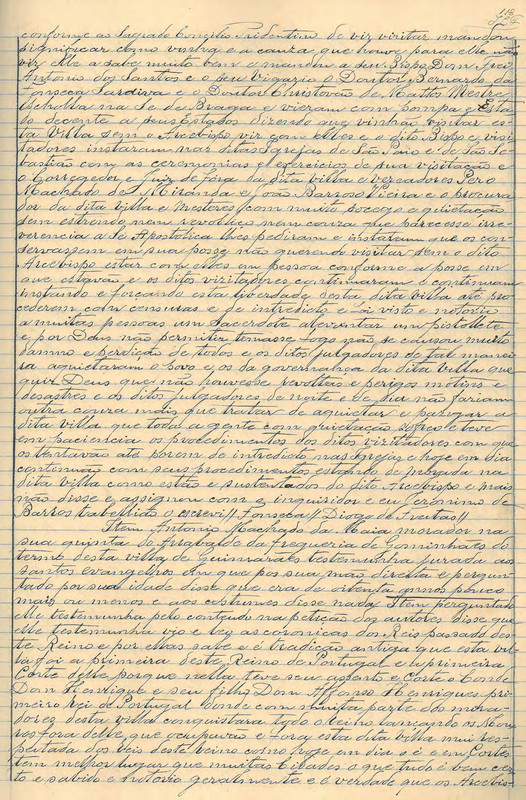 conforme ao Sagrado Concilio Tridentino de vir visitar mandou
significar como vinha e a cauza que houve para elle não
vir elle a sabe muito bem e mandou a seu Bispo Dom Frei
Antonio dos Santos e o seu vigario o Doutor Bernardo da
Fonseca Sardiva e o Doutor Christovão de Mattos Mestre
Escholla na Se de Braga e vieram com pompa e Esta
do decente a seus Estados dizendo que vinhão visitar es
ta Villa sem o Arcebispo vir com elles e o dito Bispo e vizi
tadores instaram nas ditas Igrejas de São Paio e de São Se
bastião com as ceremonias e exercicios de sua visitação e
o Corregedor e Juiz de fóra da dita villa e vereadores Pero
Machado de Miranda e João Barroso Vieira e o procura
dor da dita villa e mestéres com muito socego e quietação
sem estrondo nem revoltas nem couza que parecesse irre-
verencia a Se Apostolica lhes pediram e instaram que os con
servassem em sua posse não querendo visitar sem o dito
Arcebispo estar com elles em pessoa conforme a posse em
que estavão e os ditos visitadores continuaram e continuam
instando e forçando esta liberdade desta dita villa até pro
cederem com censuras e de intredicto e foi visto e notorio
a muitas pessoas um Sacerdote aleventar um pistolete
e por Deus não permitir tomasse fogo não se causou muito
damno e perdição de todos e os ditos julgadores de tal manei
ra aquietaram o povo e os da governança da dita villa que
quiz Deus que não houvesse revoltas e perigos motins e
desastres e os ditos julgadores de noite e de dia não fariam
outra couza mais que tratar de aquietar e pacificar a
dita villa que toda a gente com quietação sofreo e teve
em paciencia os procedimentos dos ditos vizitadores com que
os tentavão até porem de intredicto nas Igrejas e hoje em dia
continuão com seus procedimentos estando de morada na
dita villa como estão e sustentados do dito Arcebispo e mais
não disse e assignou com o inquisidor e eu Jeronimo de
Barros taballião o escrevi // Fonseca // Diogo de Freitas //
Item Antonio Machado da Maia morador na
sua quinta do Arrabalde da freguezia de Cominhaes do
termo desta villa de Guimarães testemunha jurada aos
santos evangelhos em que pos sua mão direita e pergun
tado por sua idade disse que era de oitenta annos pouco
mais ou menos e aos custumes disse nada. Item perguntado
elle testemunha pelo contheudo na petição dos autores disse que
elle testemunha vio e leu as coronicas dos Reis passado des-
te Reino e por ellas sabe e é tradição antiga que esta vil-
la foi a primeira deste Reino de Portugal e a primeira
Corte delle porque nella teve seu assento e Corte o Conde
Dom Henrique e seu filho Dom Affonso Henriques pri-
meiro rei de Portugal donde com muita parte dos mora-
dores desta villa conquistara todo o reino lançando os Mou
ros fora delle que ocupavão e fora esta dita villa mui res-
peitada dos reis deste reino como hoje em dia o é e em Cortes
tem melhor lugar que muitas Cidades o que tudo é bem cer
to e sabido e notorio geralmente e é verdade que os Arcebis-